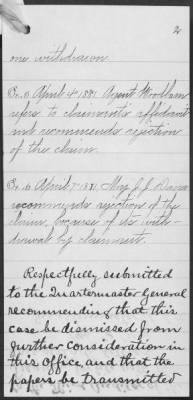 2
one withdrawn
On April 4th 1881 Agent
refers to claimant's affidavit
and recommends rejection
of the claim.
On April 7th 1881 Maj. J. J. Dana
recommends rejection of the
claim, because of its with-
drawal by claimant.
Respectfully submitted
to the Quartermaster General
recommending that this
case be dismissed from
further consideration in
this Office, and that the
papers be transmitted